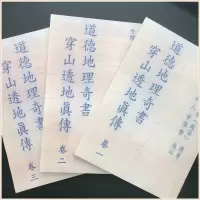 道德地理奇書
穿山透地眞傳
卷三
道德地理奇書
穿山透地眞傳
卷二
道德地理奇書
穿山透地眞傳
卷一